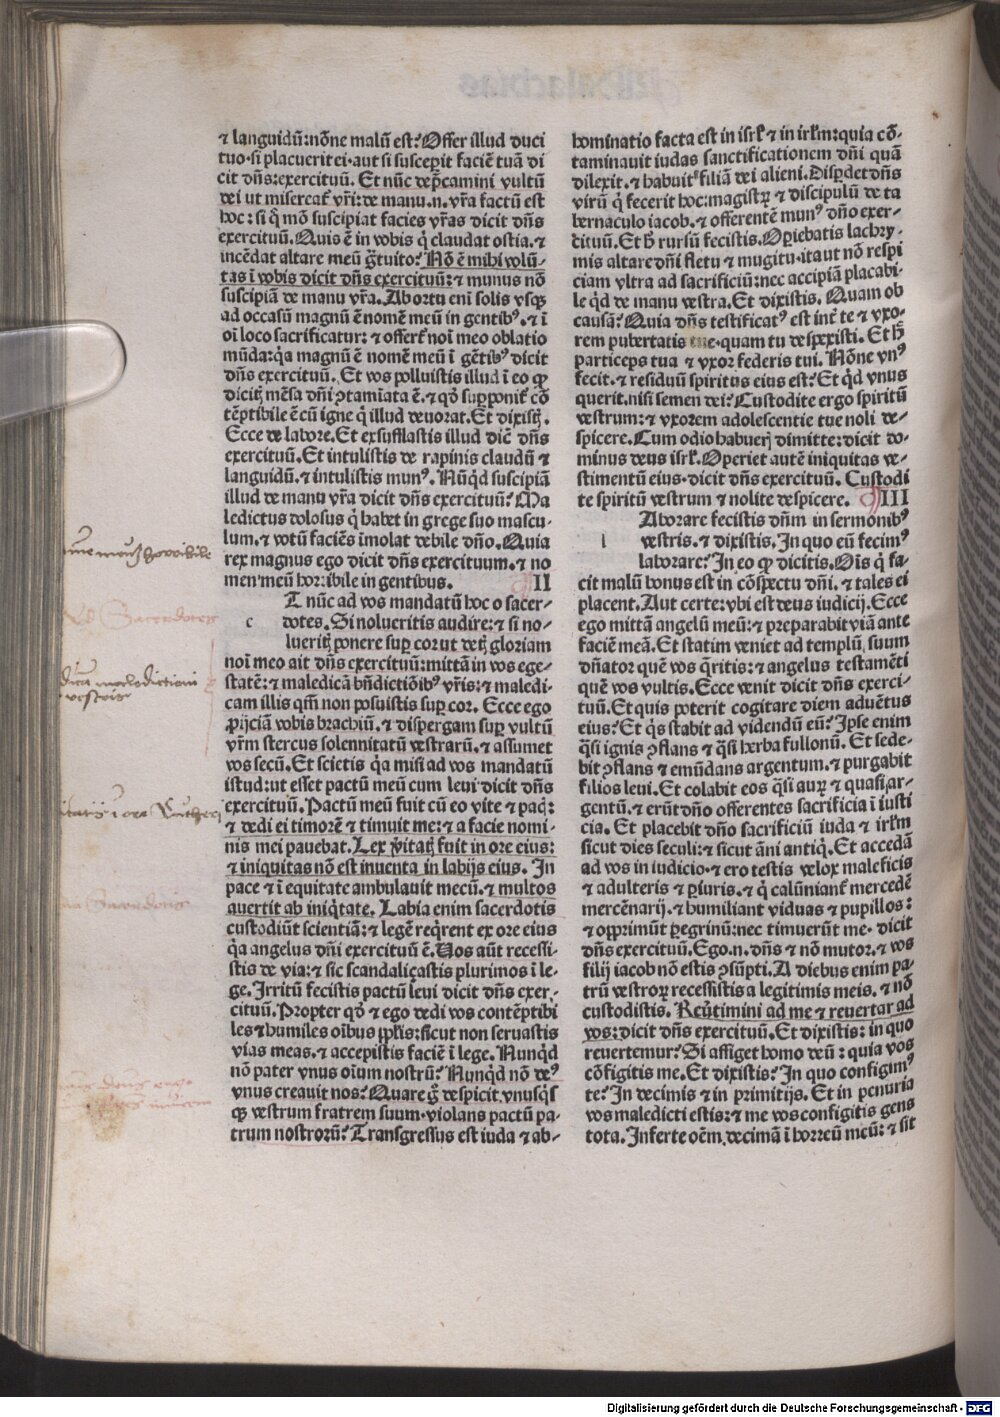 ⁊ languidū:nōne malū est? Offer illud duci
tuo·si placuerit ei·aut si susceperit faciē tuā di
cit dn̄s:exercituū. Et nūc dep̄camini vultū
dei ut misereat᷑ vr̄i:de manu.n.vr̄a factū est
hoc: si q̄ mō suscipiat facies vr̄as dicit dn̄s
exercituū. Quis ē in vobis q̄ claudat ostia.⁊
incēdat altare meū gr̄tuito? Nō ē mihi volū-
tas ī vobis dicit dn̄s exercituū:⁊ munus nō
suscipiā de manu vr̄a. Ab ortu enī solis vsqꝫ
ad occasū magnū ē nomē meū in gentibꝰ.⁊ ī
oī loco sacrificatur: ⁊ offert᷑ noī meo oblatio
mūda:q̄a magnū ē nomē meū ī gētibꝰ dicit
dn̄s exercituū. Et vos polluistis illud ī eo ꝙ
dicitꝭ mēsa dn̄i ꝯtamīata ē.⁊ qd̄ supponit᷑ cō
tēptibile ē cū igne q̄ illud deuorat. Et dixistꝭ.
Ecce de labore. Et exsufflastis illud dic̄ dn̄s
exercituū. Et intulistis de rapinis claudū ⁊
languidū.⁊ intulistis munꝰ. Nūq̄d suscipiā
illud de manu vr̄a dicit dn̄s exercituū? Ma
ledictus dolosus q̄ habet in grege suo mascu-
lum.⁊ votū faciēs īmolat debile dn̄o. Quia
rex magnus ego dicit dn̄s exercituum.⁊ no
men meū horribile in gentibus. II
T nūc ad vos mandatū hoc o sacer-
c dotes. Si nolueritis audire:⁊ si no-
lueritꝭ ponere suꝑ cor ut detꝭ gloriam
noī meo ait dn̄s exercituū:mittā in vos ege-
statē:⁊ maledicā bn̄dictiōibꝰ vr̄is:⁊ maledi-
cam illis qm̄ non posuistis suꝑ cor. Ecce ego
ꝓijciā vobis brachiū.⁊ dispergam suꝑ vultū
vr̄m stercus solennitatū vestrarū.⁊ assumet
vos secū. Et scietis q̄a misi ad vos mandatū
istud:ut esset pactū meū cum leui dicit dn̄s
exercituū. Pactū meū fuit cū eo vite ⁊ paꝗ:
⁊ dedi ei timorē ⁊ timuit me:⁊ a facie nomi-
nis mei pauebat. Lex v̄itatꝭ fuit in ore eius:
⁊ iniquitas nō est inuenta in labijs eius. In
pace ⁊ ī equitate ambulauit mecū.⁊ multos
auertit ab iniq̄tate. Labia enim sacerdotis
custodiūt scientiā:⁊ legē req̄rent ex ore eius
q̄a angelus dn̄i exercituū ē. Uos aūt recessi-
stis de via:⁊ sic scandaliçastis plurimos ī le-
ge. Irritū fecistis pactū leui dicit dn̄s exer-
cituū. Propter qd̄ ⁊ ego dedi vos contēptibi
les ⁊ humiles oībus pplis:sicut non seruastis
vias meas.⁊ accepistis faciē ī lege. Nunq̄d
nō pater vnus oīum nostrū? Nunq̄d nō deꝰ
vnus creauit nos? Quare gͦ despicit.vnusq̄s
qꝫ vestrum fratrem suum·violans pactū pa-
trum nostrorū? Transgressus est iuda ⁊ ab-
bominatio facta est in isrl̄ ⁊ in irl̄m:quia cō-
taminauit iudas sanctificationem dn̄i quā
dilexit.⁊ habuit filiā dei alieni. Disꝑdet dn̄s
virū q̄ fecerit hoc:magistꝝ ⁊ discipulū de ta
bernaculo iacob.⁊ offerentē munꝰ dn̄o exer-
cituū. Et h̄ rursū fecistis. Oꝑiebatis lachry-
mis altare dn̄i fletu ⁊ mugitu·ita ut nō respi
ciam vltra ad sacrificiū:nec accipiā placabi-
le q̄d de manu vestra. Et dixistis. Quam ob
causā? Quia dn̄s testificatꝰ est int̄ te ⁊ vxo-
rem pubertatis tue·quam tu despexisti. Et h̄
particeps tua ⁊ vxor federis tui. Nōne vnꝰ
fecit.⁊ residuū spiritus eius est? Et q̄d vnus
querit.nisi semen dei? Custodite ergo spiritū
vestrum:⁊ vxorem adolescentie tue noli de-
spicere. Cum odio habuerꝭ dimitte:dicit do-
minus deus isrl̄. Operiet autē iniquitas ve-
stimentū eius·dicit dn̄s exercituū. Custodi
te spiritū vestrum ⁊ nolite despicere. III
Aborare fecistis dn̄m in sermonibꝰ
l vestris.⁊ dixistis. In quo eū fecimꝰ
laborare? In eo ꝙ dicitis. Oīs q̄ fa-
cit malū bonus est in cōspectu dn̄i.⁊ tales ei
placent. Aut certe:vbi est deus iudicij. Ecce
ego mittā angelū meū:⁊ preparabit viā ante
faciē meā. Et statim veniet ad templū suum
dn̄ator quē vos q̄ritis:⁊ angelus testamēti
quē vos vultis. Ecce venit dicit dn̄s exerci-
tuū. Et quis poterit cogitare diem aduētus
eius? Et q̄s stabit ad videndū eū? Ipse enim
q̄si ignis ꝯflans ⁊ q̄si herba fullonū. Et sede-
bit ꝯflans ⁊ emūdans argentum.⁊ purgabit
filios leui. Et colabit eos q̄si auꝝ ⁊ quasi ar-
gentū.⁊ erūt dn̄o offerentes sacrificia ī iusti
cia. Et placebit dn̄o sacrificiū iuda ⁊ irl̄m
sicut dies seculi:⁊ sicut āni antiq̄. Et accedā
ad vos in iudicio·⁊ ero testis velox maleficis
⁊ adulteris ⁊ ꝑiuris.⁊ q̄ calūniant᷑ mercedē
mercēnarij.⁊ humiliant viduas ⁊ pupillos:
⁊ opprimūt ꝑegrinū:nec timuerūt me· dicit
dn̄s exercituū. Ego.n.dn̄s ⁊ nō mutor.⁊ vos
filij iacob nō estis ꝯsūpti. A diebus enim pa-
trū vestroꝝ recessistis a legitimis meis.⁊ nō
custodistis. Reu̇timini ad me ⁊ reuertar ad
vos:dicit dn̄s exercituū. Et dixistis: in quo
reuertemur? Si affiget homo deū: quia vos
cōfigitis me. Et dixistis? In quo configimꝰ
te? In decimis ⁊ in primitijs. Et in penuria
vos maledicti estis:⁊ me vos configitis gens
tota. Inferte oēm decimā ī horreū meū: ⁊ sit
Digitalisierung gefördert durch die Deutsche Forschungsgemeinschaft - DFG